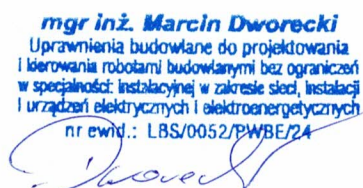 mgr inż. Marcin Dworecki
Uprawnienia budowlane do projektowania
i kierowania robotami budowlanymi bez ograniczeń
w specjalności: instalacyjnej w zakresie sieci, instalacji
i urządzeń elektrycznych i elektroenergetycznych
nr ewid.: LBS/0052/PWBE/24
Dworecki